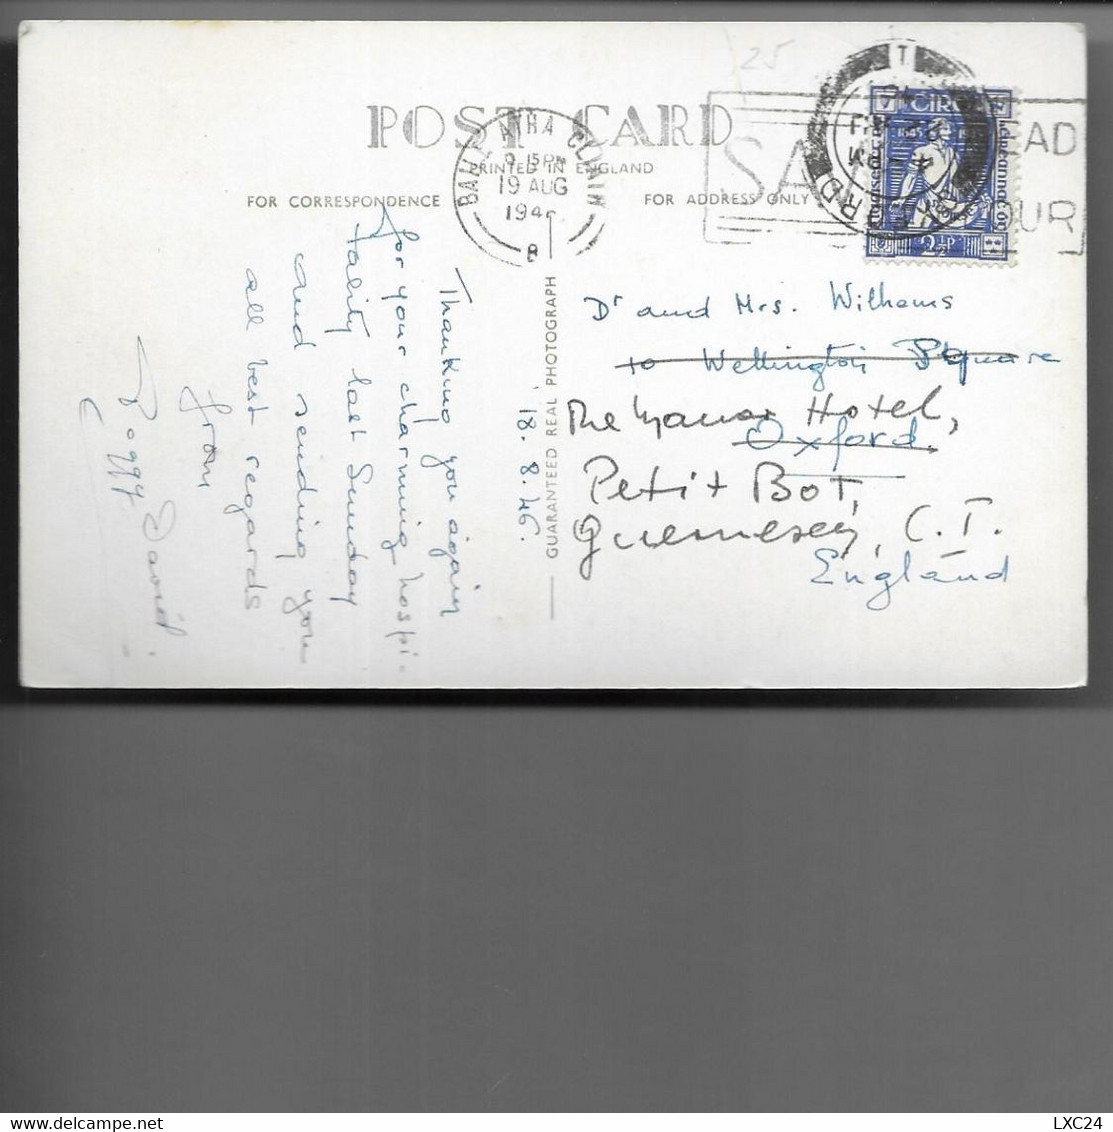 25
POST CARD
PRINTED IN ENGLAND
FOR CORRESPONDENCE
FOR ADDRESS ONLY
BAILE ÁTHA CLIATH
9.15PM
19 AUG
194
8
SA
EAD
OUR
ÉIRE
1845
2½P
4 - PM
GUARANTEED REAL PHOTOGRAPH
18.8.46.
Thanking you again
for your charming hospi-
tality last Sunday
and sending you
all best regards
from
Peggy David.
Dr and Mrs. Williams
10 Wellington Square
Oxford.
The Manor Hotel,
Petit Bot,
Guernsey, C.I.
England
LXC24